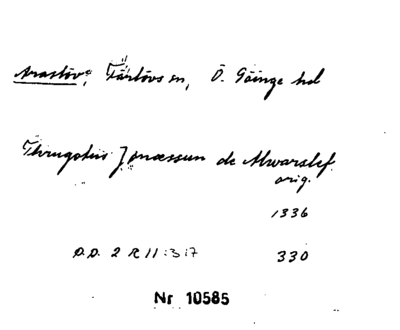 Araslöv, Färlövs sn, Ö. Göinge hd
Thrugotus Jonæssun de Alwarslef
orig.
1336
D.D. 2 R 11:317 330
Nr 10585